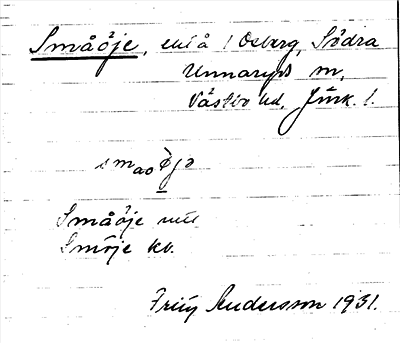 Småöje, enl å l Osberg, Södra
Unnaryds sn,
Västbo hd. Jönk. l.
smaoøjə
Småöje
Smöje kv.
Andersson 1931.